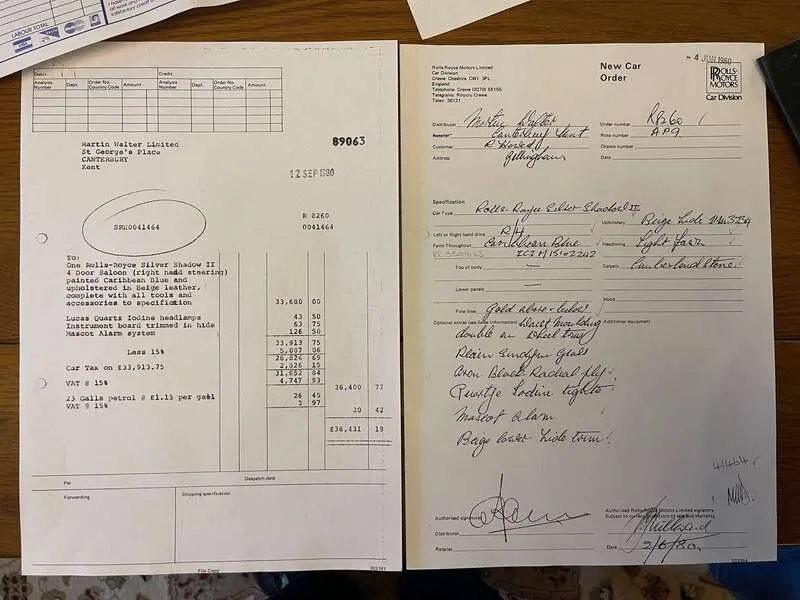 LABOUR TOTAL
VISA
Debit
Credit
Analysis Number
Dept.
Order No. Country Code
Amount
Analysis Number
Dept.
Order No. Country Code
Amount
Martin Walter Limited
St George's Place
CANTERBURY
Kent
89063
12 SEP 1980
SRH0041464
R 8260
0041464
To:
One Rolls-Royce Silver Shadow II
4 Door Saloon (right hand steering)
painted Caribbean Blue and
upholstered in Beige leather,
complete with all tools and
accessories to specification 33,680 00
Lucas Quartz Iodine headlamps 43 50
Instrument board trimmed in hide 63 75
Mascot Alarm system 126 50
33,913 75
Less 15% 5,087 06
28,826 69
Car Tax on £33,913.75 2,826 15
31,652 84
VAT @ 15% 4,747 93
36,400 77
23 Galls petrol @ £1.15 per gall 26 45
VAT @ 15% 3 97
30 42
£36,431 19
Per
Despatch date
Forwarding
Shipping specification
File Copy
Rolls-Royce Motors Limited
Car Division
Crewe Cheshire CW1 3PL
England
Telephone Crewe (0270) 55155
Telegrams Roycru Crewe
Telex 36121
New Car
Order
- 4 JUN 1980
RR
ROLLS-
ROYCE
MOTORS
Car Division
Distributor
Canterbury Kent
Order number R8260
Retailer
Rota number AP9
Customer
Chassis number
Address Gillingham
Date
Specification
Car Type Rolls-Royce Silver Shadow II
Upholstery Beige hide
Left or Right hand drive R/H
Headlining Light Fawn
Paint Throughout Caribbean Blue
ICI M151-2242
Carpets Cumberland Stone
Top of body —
Lower panels —
Hood
Fine lines Gold above & below
Waist Moulding
Optional extras (see Sales Information)
Additional equipment
double on wheel trims
Plain Sundym Glass
Avon Black Radial ply
Quartz Iodine lights
Mascot Alarm
Beige lower hide trim
41464
Authorised signature
Distributor
Retailer
Authorised Rolls-Royce Motors Limited signatory
Date 2/6/80